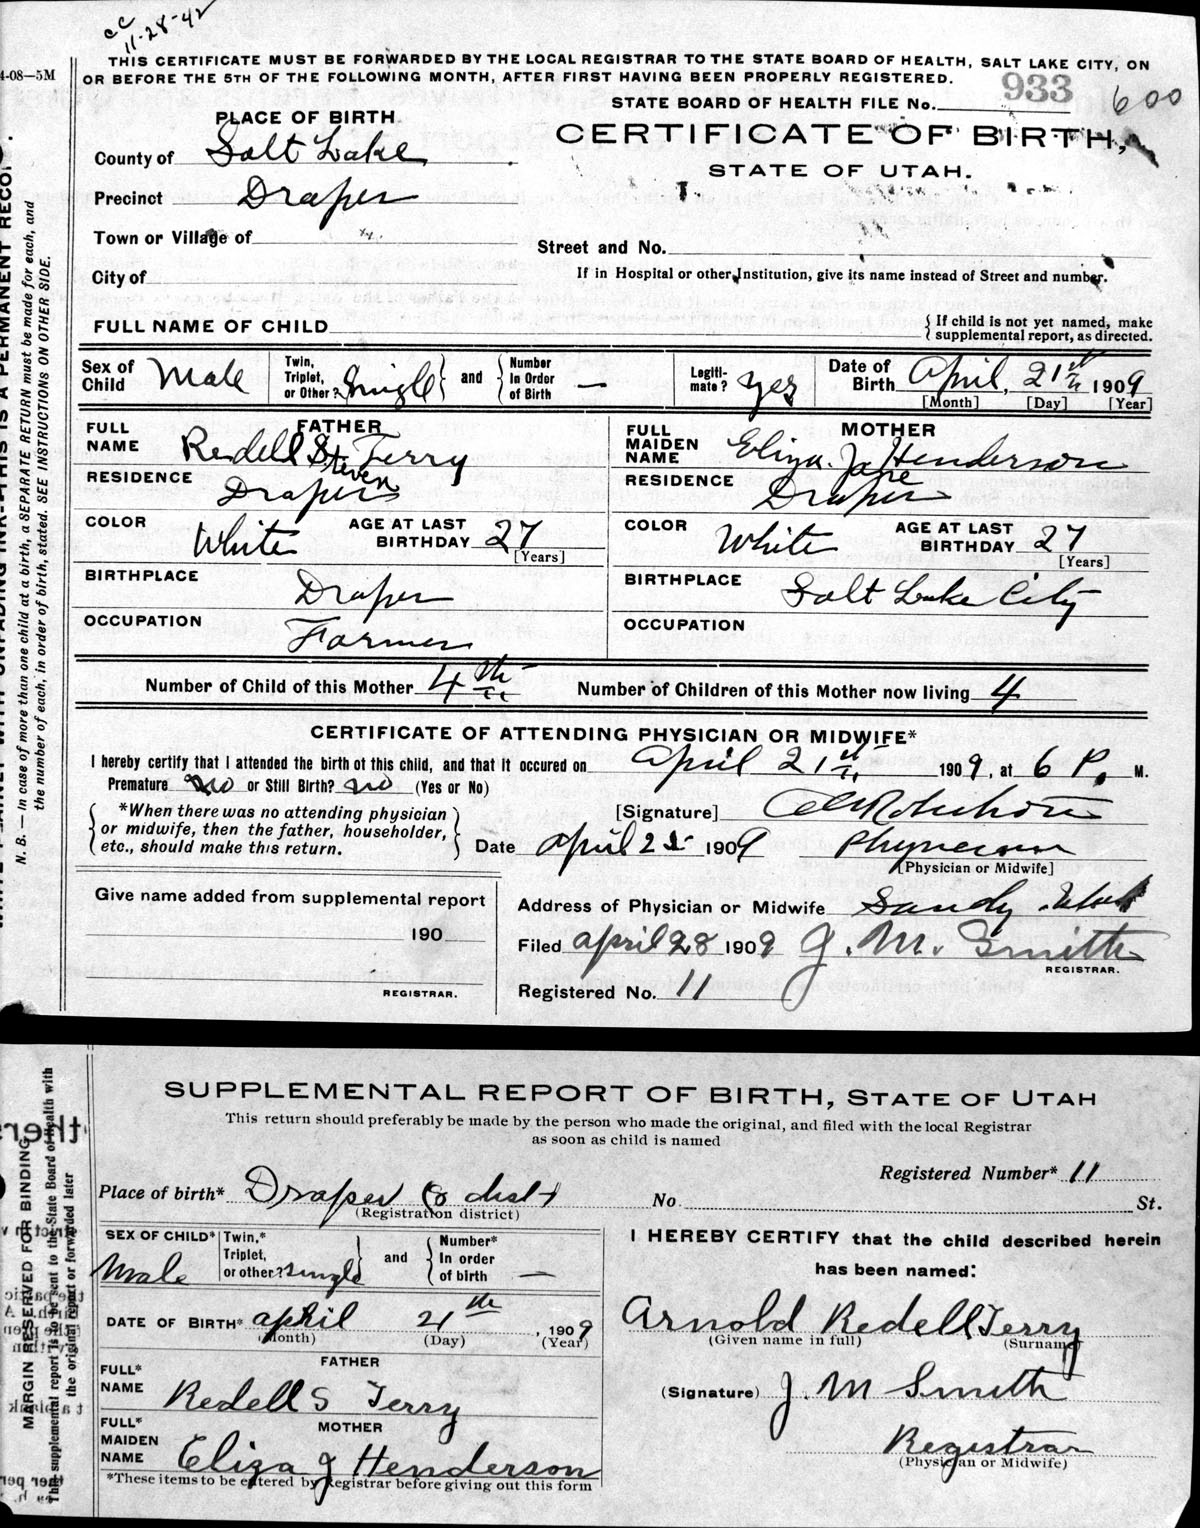 cc
11-28-42
4-08—5M
THIS CERTIFICATE MUST BE FORWARDED BY THE LOCAL REGISTRAR TO THE STATE BOARD OF HEALTH, SALT LAKE CITY, ON
OR BEFORE THE 5TH OF THE FOLLOWING MONTH, AFTER FIRST HAVING BEEN PROPERLY REGISTERED.
STATE BOARD OF HEALTH FILE No. 933 600
PLACE OF BIRTH
CERTIFICATE OF BIRTH,
STATE OF UTAH.
County of Salt Lake
Precinct Draper
Town or Village of
Street and No.
City of
If in Hospital or other Institution, give its name instead of Street and number.
FULL NAME OF CHILD
{ If child is not yet named, make
supplemental report, as directed.
Sex of Child Male
Twin, Triplet, or Other? Single } and { Number In Order of Birth —
Legiti-mate? yes
Date of Birth April, 21st 1909
[Month] [Day] [Year]
FATHER
FULL NAME Redell S. Terry
Steven
RESIDENCE Draper
COLOR White AGE AT LAST BIRTHDAY 27 [Years]
BIRTHPLACE Draper
OCCUPATION Farmer
MOTHER
FULL MAIDEN NAME Eliza Jane Henderson
RESIDENCE Draper
COLOR White AGE AT LAST BIRTHDAY 27 [Years]
BIRTHPLACE Salt Lake City
OCCUPATION
Number of Child of this Mother 4th Number of Children of this Mother now living 4
CERTIFICATE OF ATTENDING PHYSICIAN OR MIDWIFE*
I hereby certify that I attended the birth of this child, and that it occured on April 21st 1909, at 6 P. M.
Premature no or Still Birth? no (Yes or No)
{ *When there was no attending physician
or midwife, then the father, householder,
etc., should make this return. }
[Signature]
Date April 21 1909 Physician
[Physician or Midwife]
Give name added from supplemental report
190
REGISTRAR.
Address of Physician or Midwife Sandy Utah
Filed April 28 1909 J. M. Smith
REGISTRAR.
Registered No. 11
N. B. — In case of more than one child at a birth, a SEPARATE RETURN must be made for each, and
the number of each, in order of birth, stated. SEE INSTRUCTIONS ON OTHER SIDE.
SUPPLEMENTAL REPORT OF BIRTH, STATE OF UTAH
This return should preferably be made by the person who made the original, and filed with the local Registrar
as soon as child is named
Registered Number* 11
Place of birth* Draper No. St.
(Registration district)
SEX OF CHILD* Male
Twin,* Triplet, or other? single } and { Number* In order of birth —
DATE OF BIRTH* April 21 1909
(Month) (Day) (Year)
FATHER
FULL* NAME Redell S Terry
MOTHER
FULL* MAIDEN NAME Eliza J Henderson
*These items to be entered by Registrar before giving out this form
I HEREBY CERTIFY that the child described herein
has been named:
Arnold Redell Terry
(Given name in full) (Surname)
(Signature) J. M Smith
Registrar
(Physician or Midwife)
MARGIN RESERVED FOR BINDING
This supplemental report is to be sent to the State Board of Health with
the original report or forwarded later